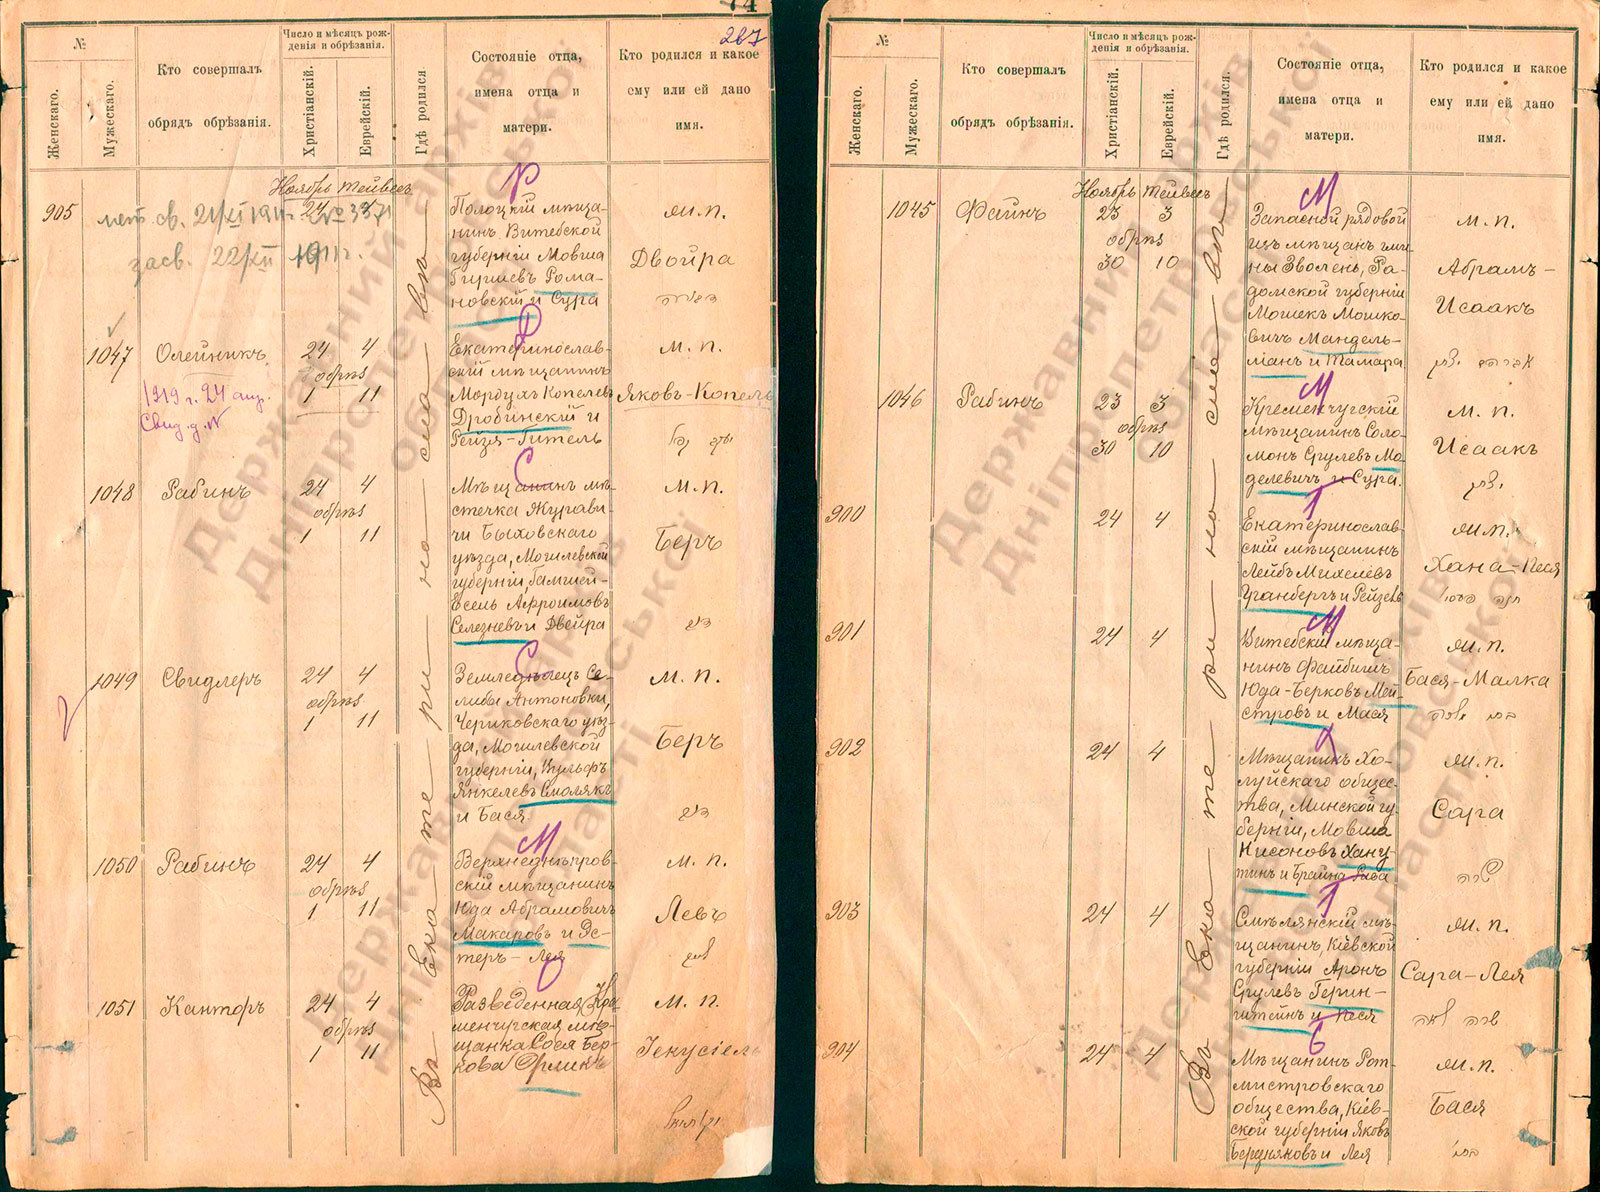 74
267
№
Женскаго.
Мужескаго.
Кто совершалъ
обрядъ обрѣзанія.
Число и мѣсяцъ рож-
денія и обрѣзанія.
Христіанскій.
Еврейскій.
Гдѣ родился
Состояніе отца,
имена отца и
матери.
Кто родился и какое
ему или ей дано
имя.
Ноябрь Тейвесъ
905
24
Полоцкій мѣща-
нинъ Витебской
губерніи Мовша
Гиршевъ Рома-
новскій и Сура
Двойра
засв. 22/XII 1911 г.
1047 Олейникъ
24 4
обрѣз
1 11
1919 г. 24 апр.
Свид. д. №
Екатеринослав-
скій мѣщанинъ
Мордухъ Копелевъ
Дробинскій и
Рейзя-Гитель
м. п.
Яковъ-Копель
1048 Рабинъ
24 4
обрѣз
1 11
Мѣщанинъ мѣ-
стечка Журави-
чи Быховскаго
уѣзда, Могилевской
губерніи, Гамшей-
Есель Афроимовъ
Селезневъ и Двейра
м. п.
Беръ
1049 Свидлеръ
24 4
обрѣз
1 11
Земледѣлецъ Се-
либы Антоновки,
Чериковскаго уѣз-
да, Могилевской
губерніи, Вульфъ
Янкелевъ Смолякъ
и Бася
м. п.
Беръ
1050 Рабинъ
24 4
обрѣз
1 11
Верхнеднѣпров-
скій мѣщанинъ
Юда Абрамовичъ
Макаровъ и Эс-
теръ-Лея
м. п.
Левъ
1051 Канторъ
24 4
обрѣз
1 11
Разведенная Кре-
менчугская мѣ-
щанка Сося Бер-
кова Орликъ
м. п.
Іекусіель
Въ Екатеринославѣ
№
Женскаго.
Мужескаго.
Кто совершалъ
обрядъ обрѣзанія.
Число и мѣсяцъ рож-
денія и обрѣзанія.
Христіанскій.
Еврейскій.
Гдѣ родился.
Состояніе отца,
имена отца и
матери.
Кто родился и какое
ему или ей дано
имя.
Ноябрь Тейвесъ
1045 Файнъ
23 3
обрѣз
30 10
Запасной рядовой
изъ мѣщанъ гми-
ны Зволень, Ра-
домской губерніи
Мошекъ Мошко-
вичъ Мандель-
міанъ и Тамара
м. п.
Абрамъ-
Исаакъ
אברהם יצחק
1046 Рабинъ
23 3
обрѣз
30 10
Кременчугскій
мѣщанинъ Соло-
монъ Срулевъ Мо-
делевичъ и Сура.
м. п.
Исаакъ
יצחק
900
24 4
Екатеринослав-
скій мѣщанинъ
Лейбъ Михелевъ
Гранбергъ и Рейзель
Хана-Песя
901
24 4
Витебскій мѣща-
нинъ Файбишъ
Юда-Берковъ Мей-
стровъ и Мася
Бася-Малка
902
24 4
Мѣщанинъ Хо-
луйскаго общес-
тва, Минской гу-
берніи, Мовша
Нисоновъ Хану-
тинъ и Брайна Рива
Сара
שרה
903
24 4
Смѣлянскій мѣ-
щанинъ, Кіевской
губерніи Аронъ
Срулевъ Герин-
штейнъ и Песя
Сара-Лея
שרה לאה
904
24 4
Мѣщанинъ Рот-
мистровскаго
общества, Кіев-
ской губерніи Яковъ
Бердняковъ и Лея
Бася
Въ Екатеринославѣ
Державний архів
Дніпропетровської
області